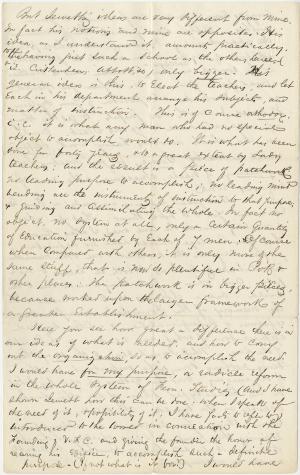 But Jewett's ideas are very different from mine.
In fact his notions and mine are opposites. His
idea, as I understand it, amounts practically,
to having just such a school as the others
only bigger. His
general idea is this, to Elect the teachers, and let
each in his department arrange his subjects, and
matter of instruction. This is of course
it is what any man who had no special
object to accomplish would do. It is what has been
done for forty years, to a great extent by
teachers: and the result is a piece of patchwork
no leading purpose to accomplish; no leading mind
bending all the instruments of instruction to that purpose,
& guiding and assimilating the whole. In fact no
object, no system at all, only a certain quantity
of Education furnished by Each of 7 men. Of course
when compared with others, it is only more of the
same stuff, that is now so plentiful in
other places: the patchwork is in bigger
because worked upon the larger framework of
a greater Establishment.
Here you see how great a difference there is in
our ideas of what is needed, and how to carry
out the organization, so as to accomplish the need.
I would have for my purpose, a radical reform
in the whole system of Study, (and I have
shown Jewett how this can be done. When I speak of
the need of it, & possibility of it, I have
introduced to the world in connection with the
founding of V. F. C. and giving the founder the honor of
rearing his Edifice, to accomplish such a definite
purpose (not what is I would have